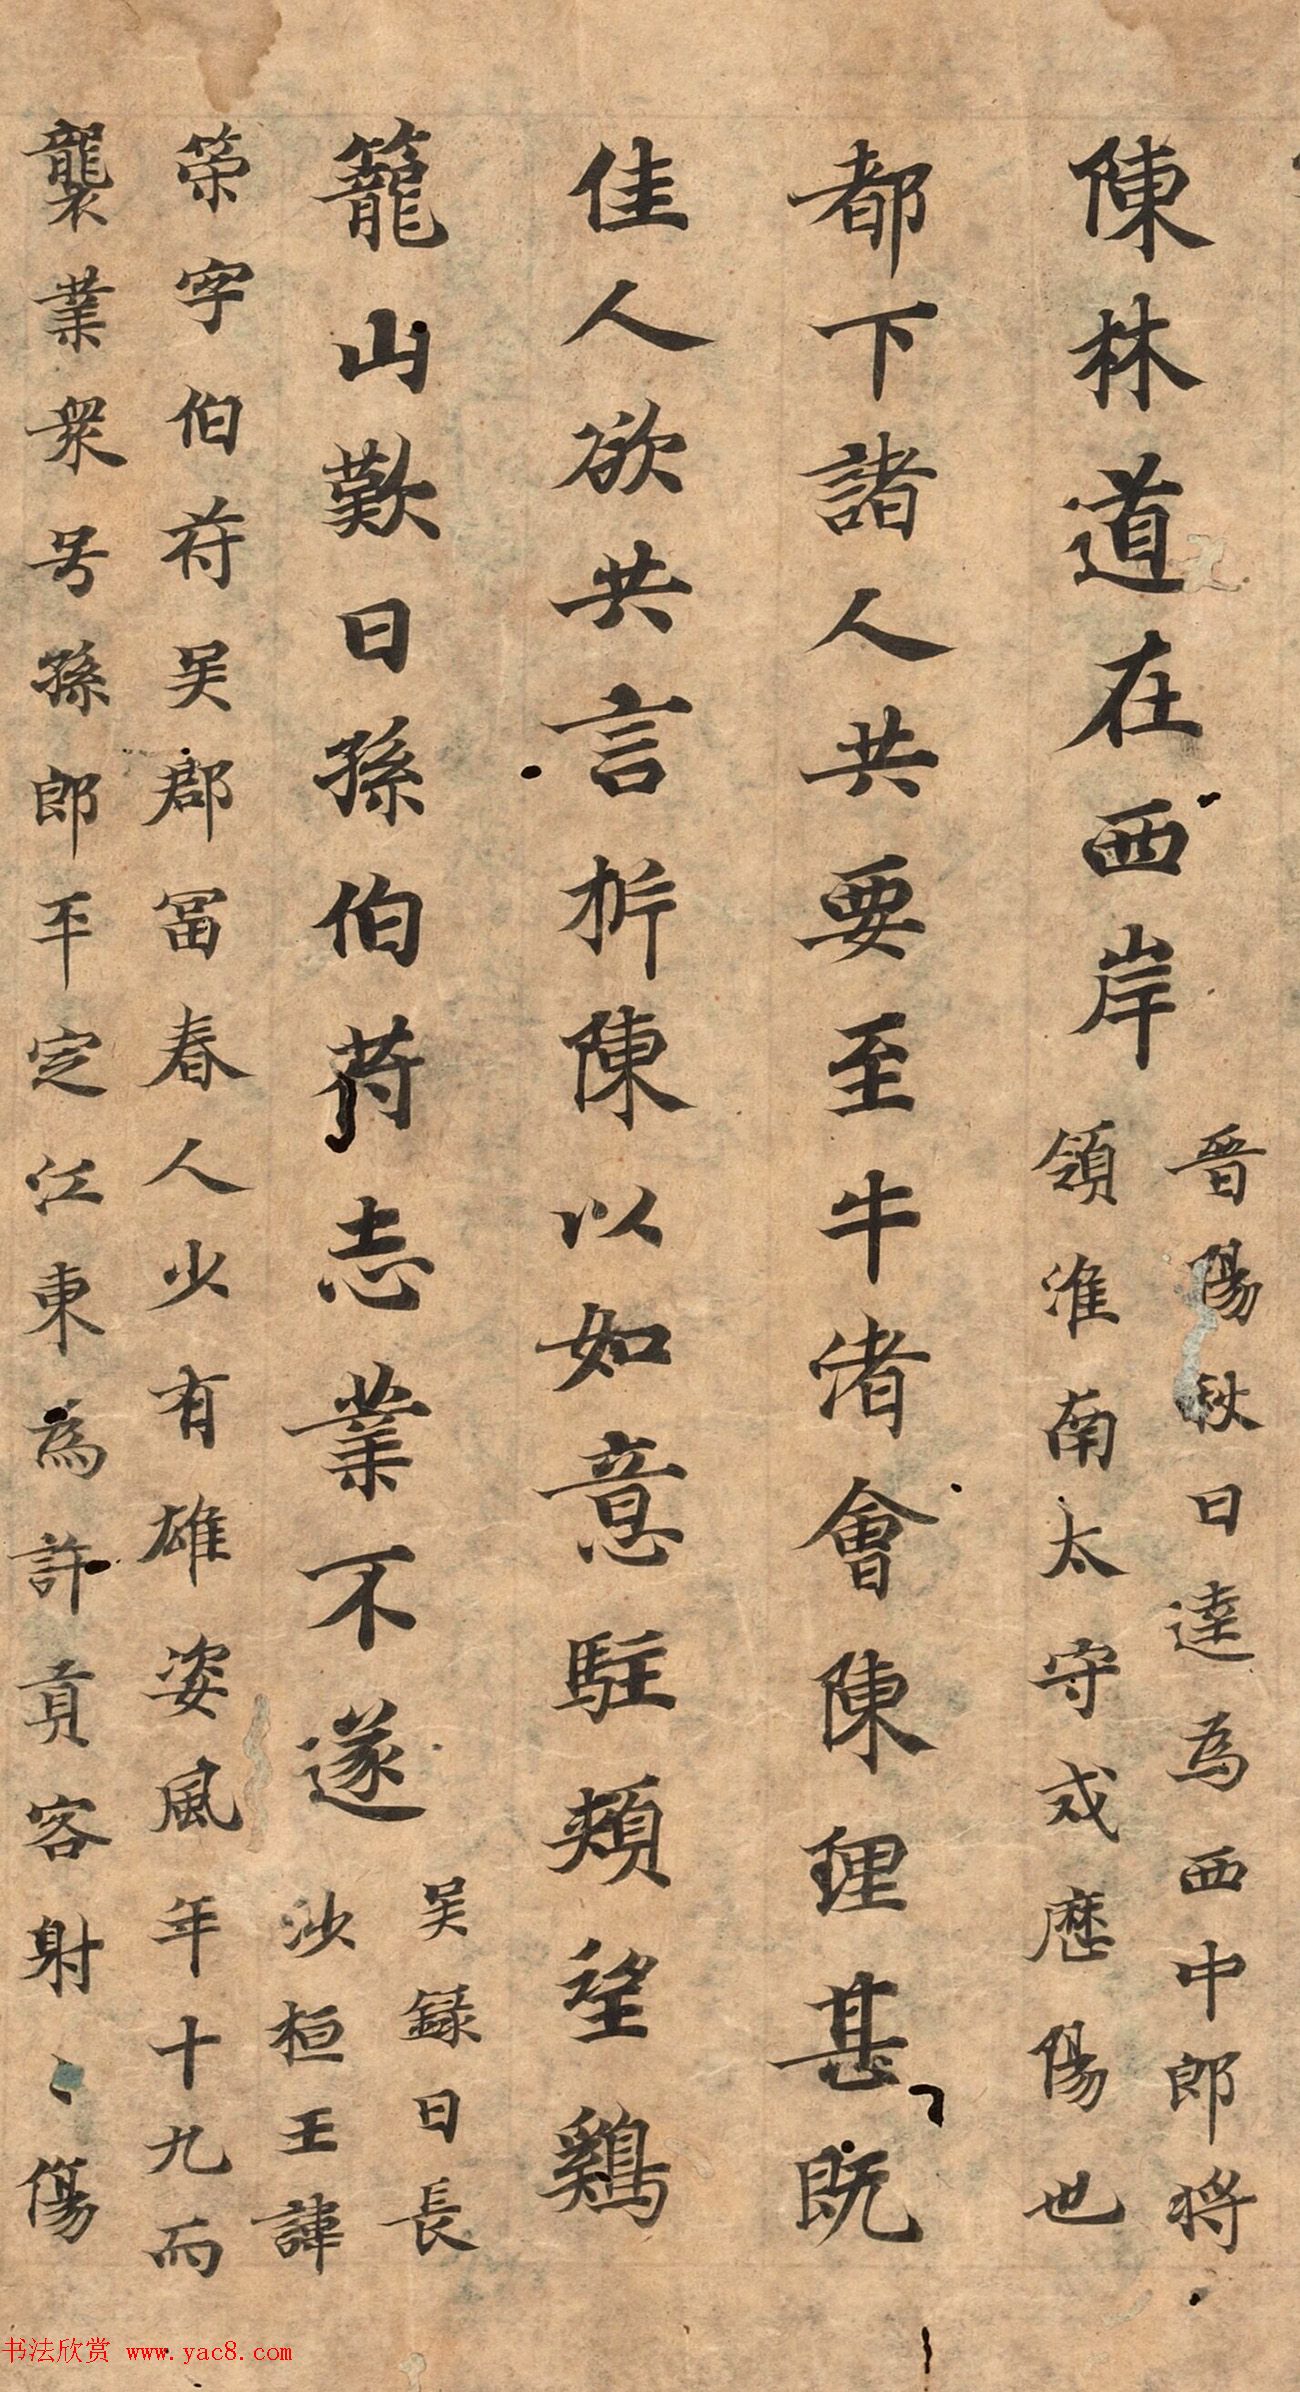 陳林道在西岸
晉陽秋曰逵為西中郎將
領淮南太守戍歷陽也
都下諸人共要至牛渚會陳理甚既
佳人欲共言析陳以如意駐頰望鷄
籠山歎曰孫伯苻志業不遂
吳録曰長
沙桓王諱
筞字伯苻吳郡冨春人少有雄姿風年十九而
襲業衆号孫郎平定江東為許貢客射〻傷
书法欣赏 www.yac8.com